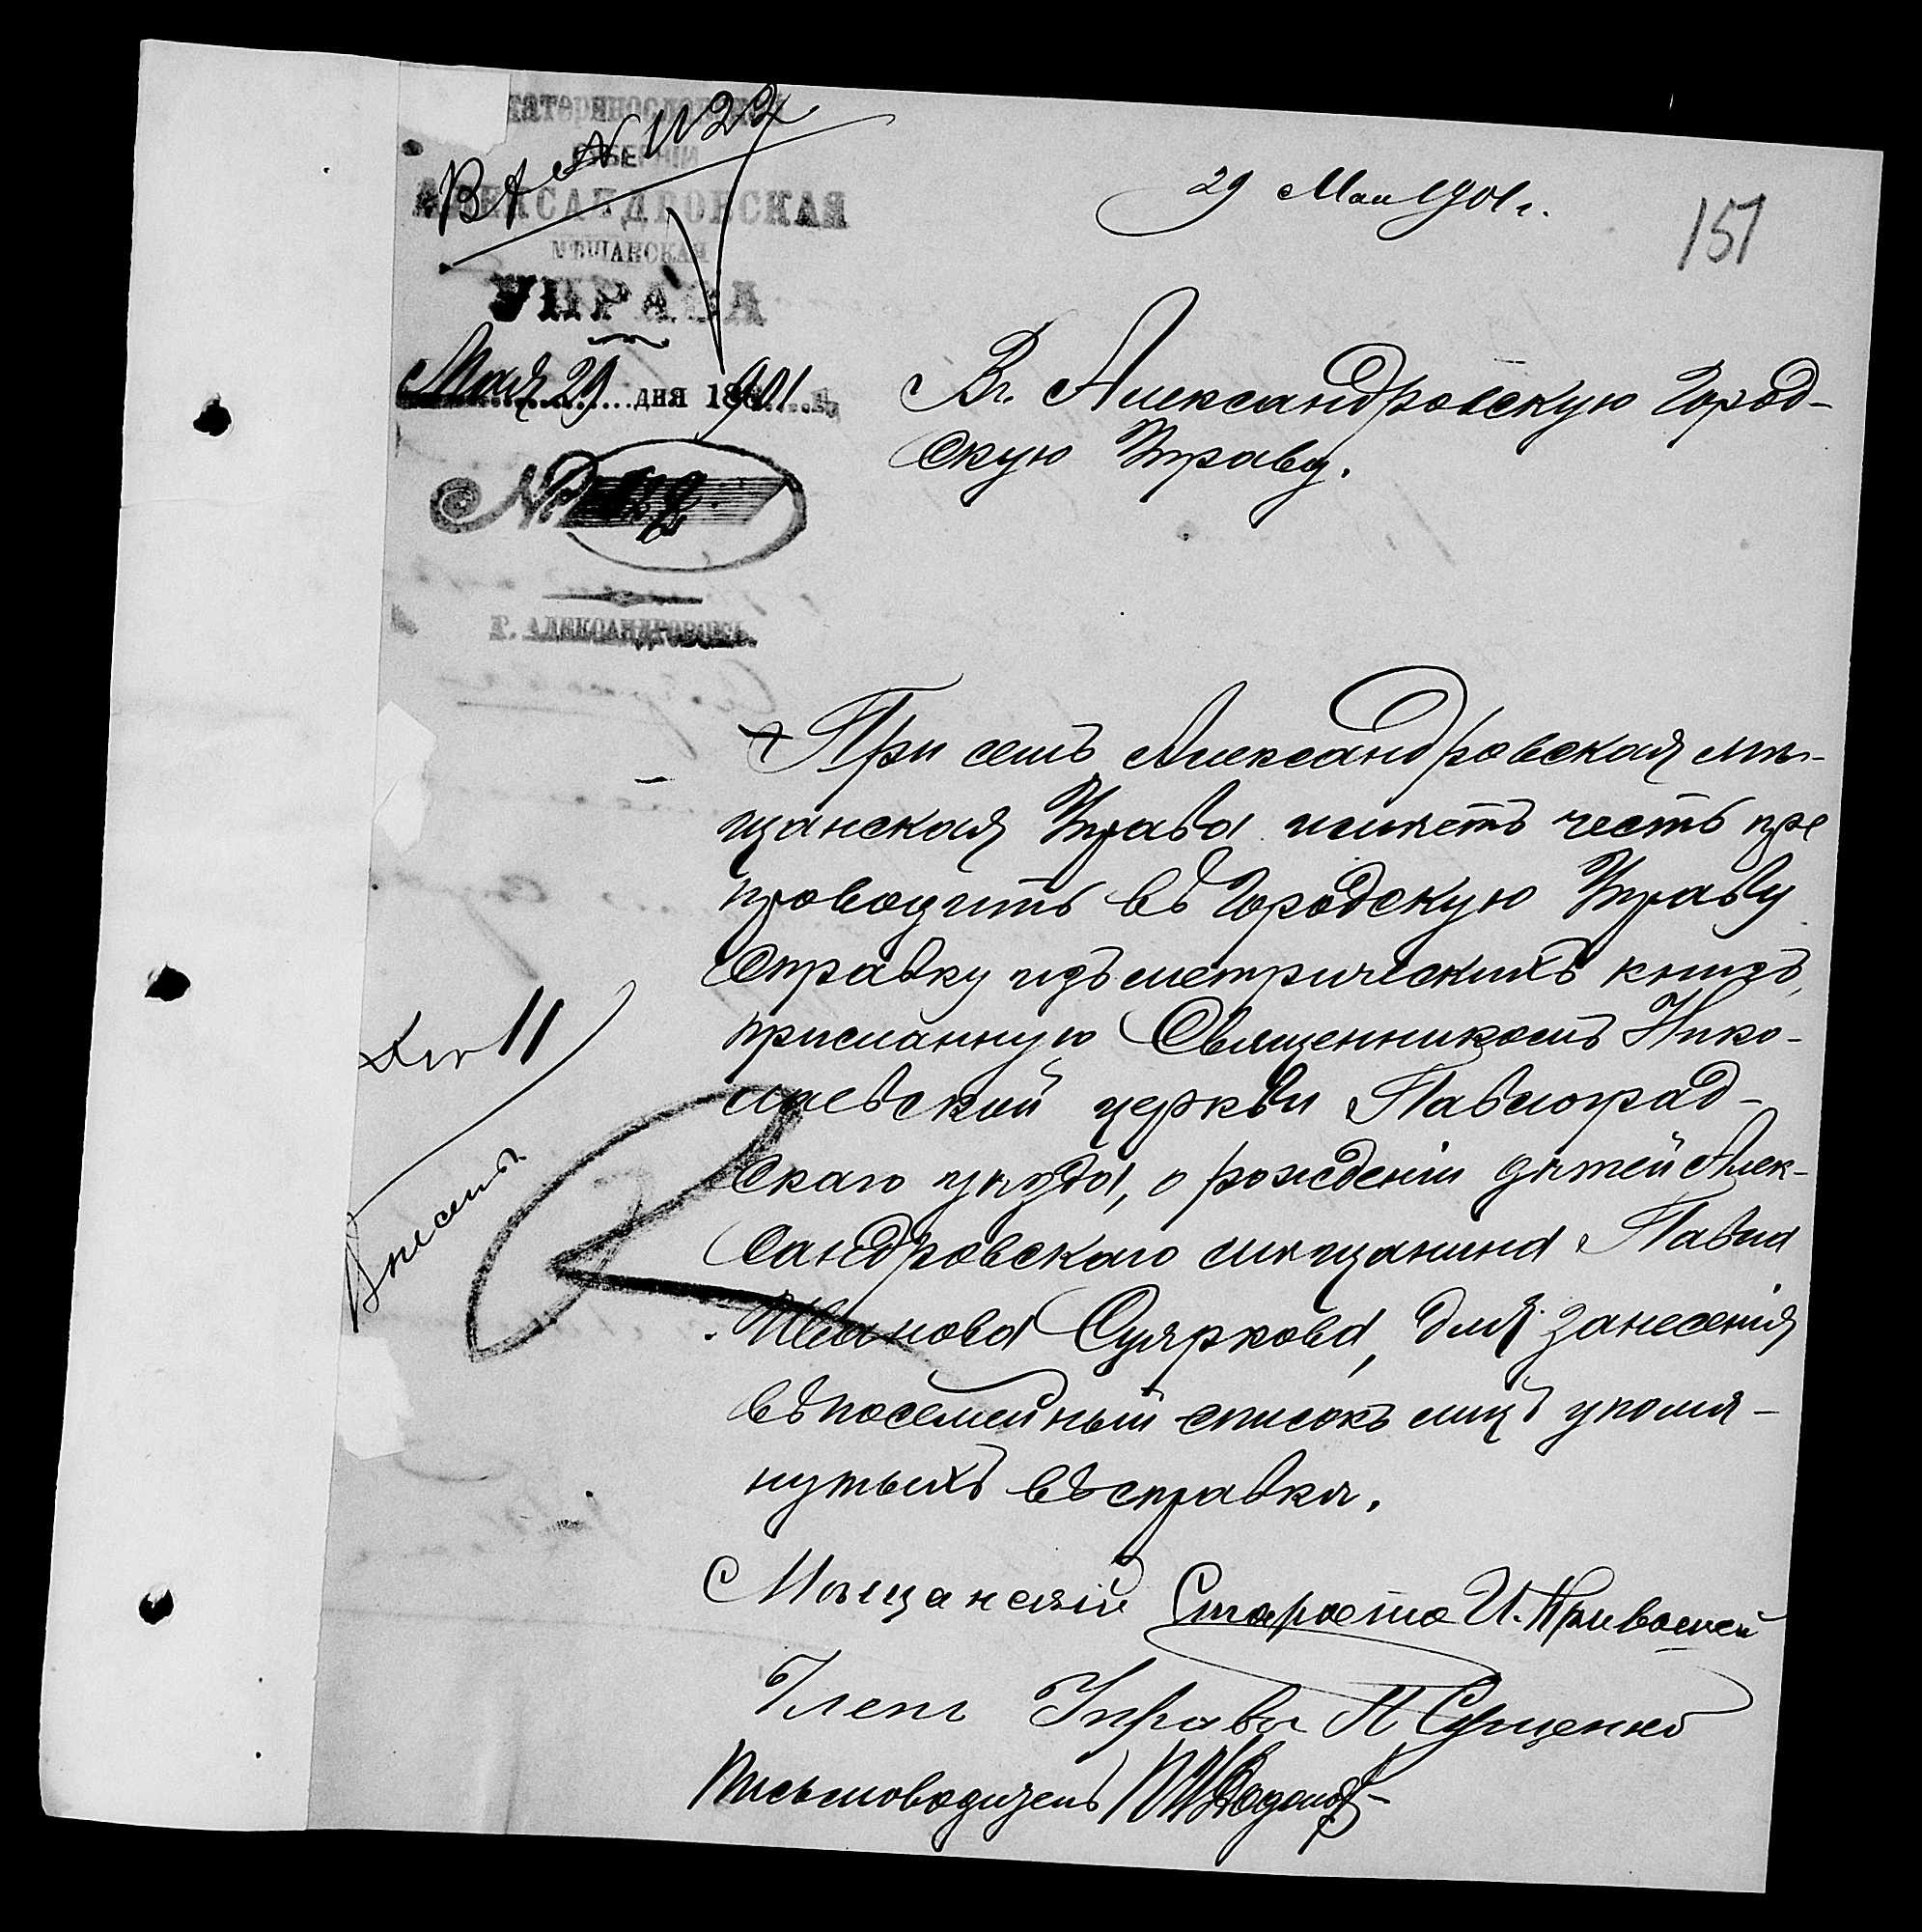 Екатеринославской
ГУБЕРНІИ
АЛЕКСАНДРОВСКАЯ
МѢЩАНСКАЯ
УПРАВА
Мая 29 дня 1901 г.
№
Г. АЛЕКСАНДРОВСКЪ.
29 Мая 1901 г.
151
Въ Александровскую Город-
скую Управу.
При семъ Александровская мѣ-
щанская Управа имѣетъ честь пре
проводить въ Городскую Управу
справку изъ метрическихъ книгъ,
присланную Священникомъ Нико-
лаевской церкви Павлоград-
скаго уѣзда, о рожденіи дѣтей Алек-
сандровскаго мѣщанина Павла
Иванова Суяркова, для занесенія
въ посемейный списокъ лицъ упомя-
нутыхъ въ справкѣ.
Мѣщанскій Староста И.
Членъ Управы П Сущенко
Письмоводитель
11
Внесены